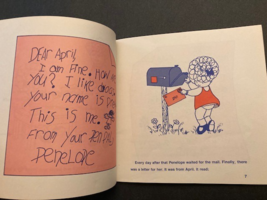 DEAR April
I am Fine. HOW
YOU? I LIKE
your name is
This is me.
From Your Pen Pal
PENELOPE
Every day after that Penelope waited for the mail. Finally, there
was a letter for her. It was from April. It read:
7